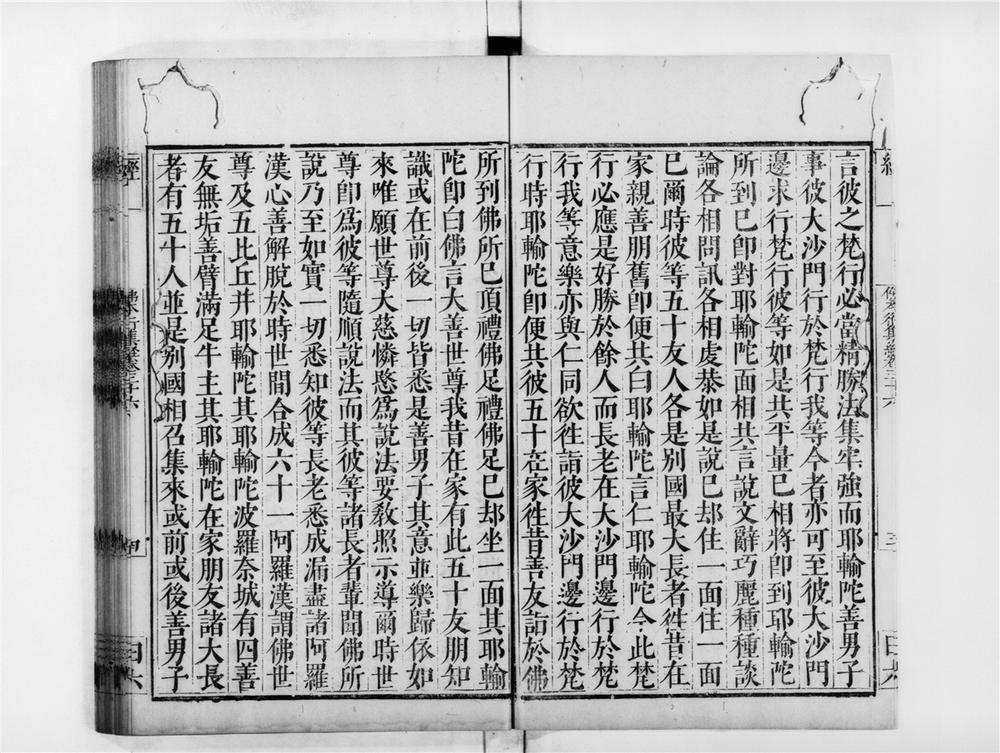 言彼之梵行必當精勝法集牢強而耶輸陀善男子
事彼大沙門行於梵行我等今者亦可至彼大沙門
邊求行梵行彼等如是共平量已相將即到耶輸陀
所到已即對耶輸陀面相共言說文辭巧麗種種談
論各相問訊各相虔恭如是說已却住一面住一面
已爾時彼等五十友人各是別國最大長者徃昔在
家親善朋舊即便共白耶輸陀言仁耶輸陀今此梵
行必應是好勝於餘人而長老在大沙門邊行於梵
行我等意樂亦與仁同欲徃詣彼大沙門邊行於梵
行時耶輸陀即便共彼五十在家徃昔善友詣於佛
所到佛所已頂禮佛足禮佛足已却坐一面其耶輸
陀即白佛言大善世尊我昔在家有此五十友朋知
識或在前後一切皆悉是善男子其意並樂歸依如
來唯願世尊大慈憐愍為說法要教照示導爾時世
尊即為彼等隨順說法而其彼等諸長者輩聞佛所
說乃至如實一切悉知彼等長老悉成漏盡諸阿羅
漢心善解脫於時世間合成六十一阿羅漢謂佛世
尊及五比丘并耶輸陀其耶輸陀波羅奈城有四善
友無垢善臂滿足牛主其耶輸陀在家朋友諸大長
者有五十人並是別國相召集來或前或後善男子